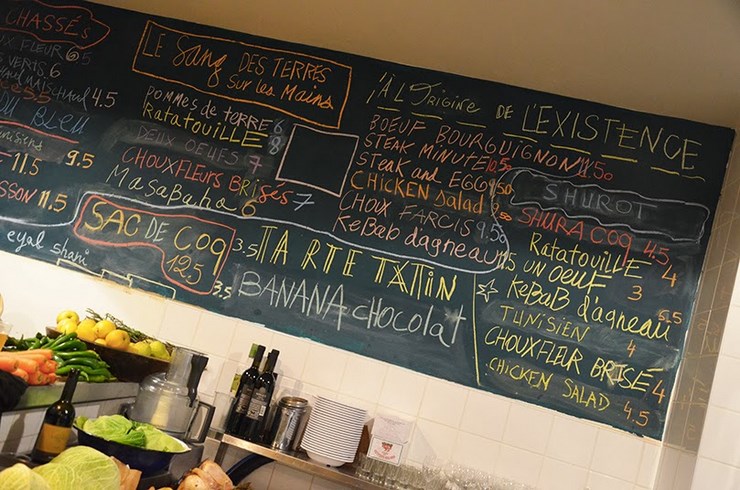 CHASSÉS
FLEUR 5
VERTS 6
4.5
BLEU
11.5 9.5
SSON 11.5
eyal shani
LE Sang DES TERRES
Sur les Mains
POMMES de TERRE 6
Ratatouille 8
DEUX OEUFS 7
CHOUXFLEURS BRISÉS 7
MaSaBaha 6
SAC DE Coq
12.5
3.5 TARTE TATIN
3.5 BANANA chocolat
À L'Origine DE L'EXISTENCE
BOEUF BOURGUIGNON 11.50
STEAK MINUTE 10.50
STEAK and EGG 9.50
CHICKEN Salad
CHOUX FARCIS 9.50
KeBab dagneau 11.5
SHUROT
SHURA COQ 4.5
Ratatouille 4
UN OEUF 3
KeBaB d'agneau 5.5
TUNISIEN 4
CHOUXFLEUR BRISÉ 4
CHICKEN SALAD 4.5